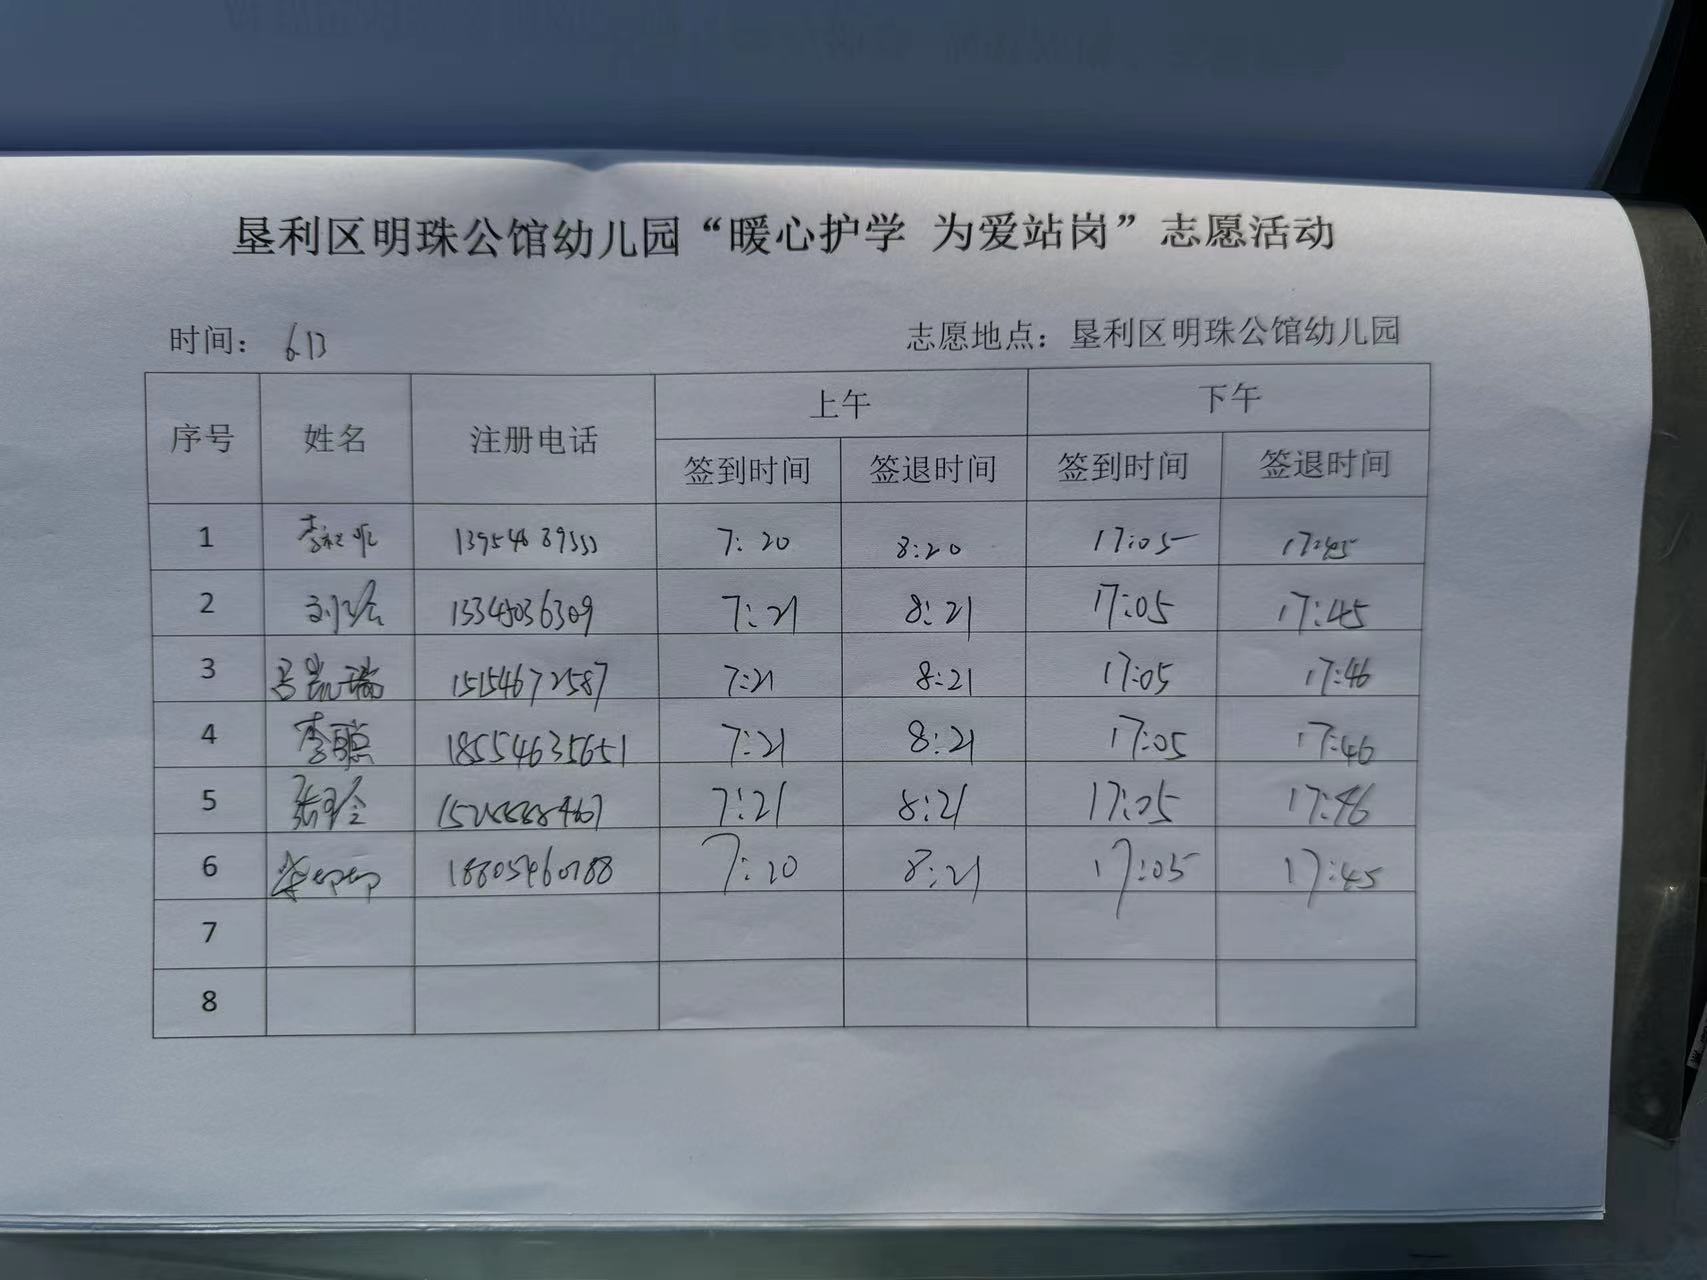 垦利区明珠公馆幼儿园“暖心护学 为爱站岗”志愿活动
时间： 6.13 志愿地点：垦利区明珠公馆幼儿园
序号 姓名 注册电话 上午 下午
签到时间 签退时间 签到时间 签退时间
1 7:20 8:20 17:05 17:45
2 7:21 8:21 17:05 17:45
3 吕凯瑞 15154672587 7:21 8:21 17:05 17:46
4 李聪 18554635651 7:21 8:21 17:05 17:46
5 7:21 8:21 17:05 17:46
6 18805460788 7:20 8:21 17:05 17:45
7
8